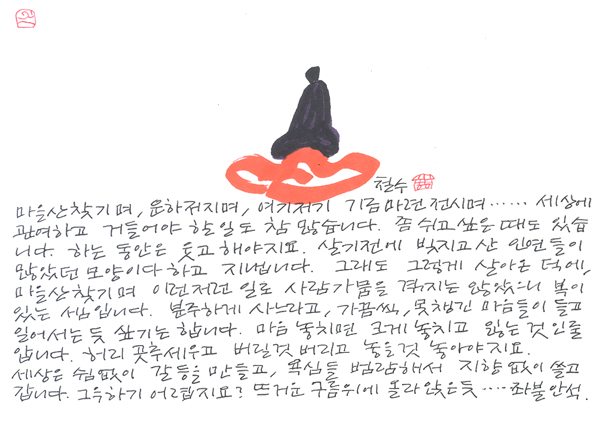 철수
마을산찾기며, 운하저지며, 여기저기 기금마련전시며…… 세상에
관여하고 거들어야 할 일도 참 많습니다. 쫌 쉬고싶은 때도 있습
니다. 하는 동안은 웃고해야지요. 살기전에 빚지고 산 인연들이
많았던 모양이다 하고 지냅니다. 그래도 그렇게 살아온 덕에,
마을산찾기며 이런저런 일로 사람가뭄을 겪지는 않았으니 복이
있는 셈입니다. 분주하게 사느라고, 가끔씩, 못챙긴 마음들이 들고
일어서는 듯 싶기는 합니다. 마음 놓치면 크게 놓치고 잃는 것인줄
압니다. 허리 곳추세우고 버릴것 버리고 놓을것 놓아야지요.
세상은 쉼없이 갈등을 만들고, 욕심들 범람해서 지향 없이 쓸고
갑니다. 그윽하기 어렵지요? 뜨거운 구름위에 올라앉은듯 …‥ 좌불안석.